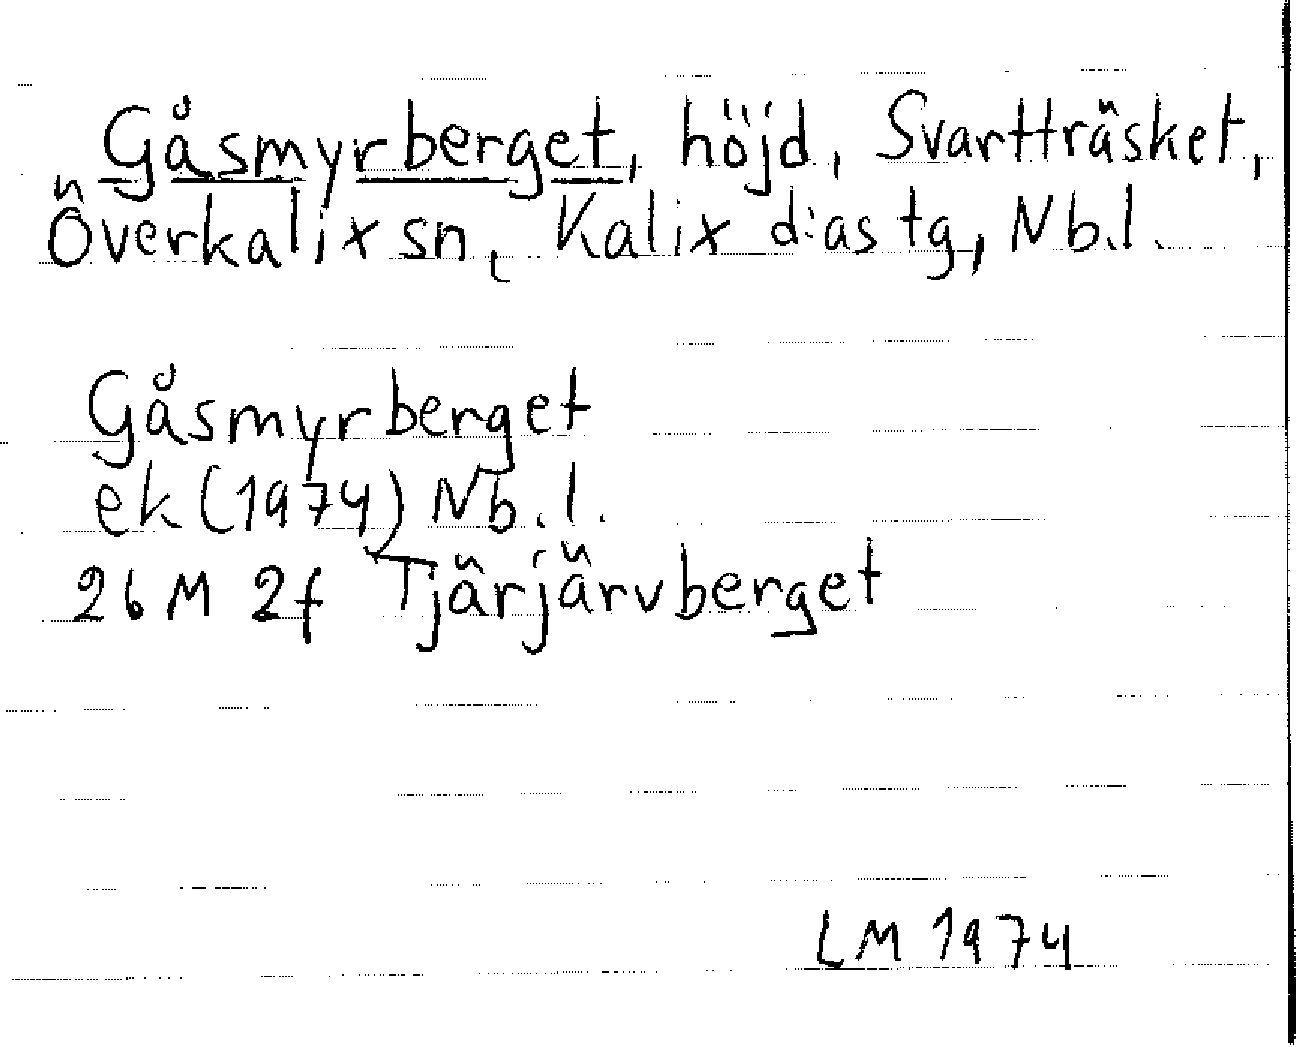 Gåsmyrberget, höjd, Svartträsket,
Överkalix sn, Kalix d:as tg, Nb.l.
Gåsmyrberget
ek (1974) Nb.l.
26 M 2f Tjärjärvberget
LM 1974